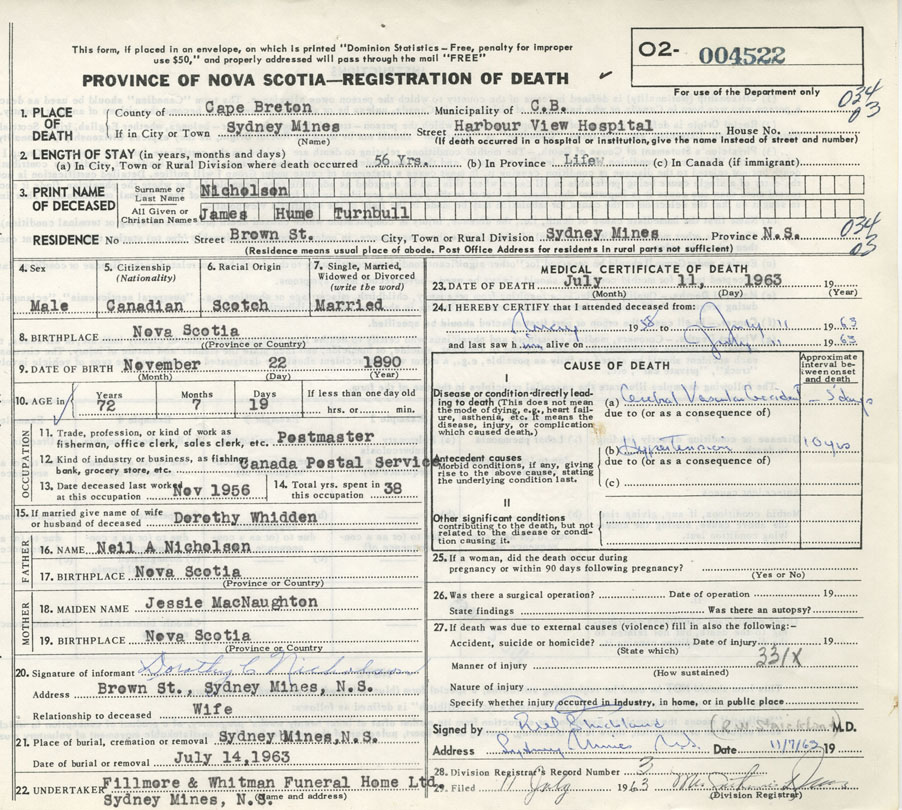 This form, if placed in an envelope, on which is printed "Dominion Statistics – Free, penalty for improper
use $50," and properly addressed will pass through the mail "FREE"
PROVINCE OF NOVA SCOTIA—REGISTRATION OF DEATH
O2- 004522
For use of the Department only
034
03
1. PLACE OF DEATH
County of Cape Breton Municipality of C.B.
If in City or Town Sydney Mines Street Harbour View Hospital House No.
(Name) (If death occurred in a hospital or institution, give the name instead of street and number)
2. LENGTH OF STAY (in years, months and days)
(a) In City, Town or Rural Division where death occurred 56 Yrs. (b) In Province Life (c) In Canada (if immigrant)
3. PRINT NAME OF DECEASED
Surname or Last Name Nicholson
All Given or Christian Names James Hume Turnbull
RESIDENCE No Street Brown St. City, Town or Rural Division Sydney Mines Province N.S.
(Residence means usual place of abode. Post Office Address for residents in rural parts not sufficient)
034
03
4. Sex Male
5. Citizenship (Nationality) Canadian
6. Racial Origin Scotch
7. Single, Married, Widowed or Divorced (write the word) Married
8. BIRTHPLACE Nova Scotia
((Province or Country)
9. DATE OF BIRTH November 22 1890
(Month) (Day) (Year)
10. AGE in Years 72 Months 7 Days 19 If less than one day old hrs. or min.
OCCUPATION
11. Trade, profession, or kind of work as fisherman, office clerk, sales clerk, etc. Postmaster
12. Kind of industry or business, as fishing, bank, grocery store, etc. Canada Postal Service
13. Date deceased last worked at this occupation Nov 1956
14. Total yrs. spent in this occupation 38
15. If married give name of wife or husband of deceased Dorothy Whidden
FATHER
16. NAME Neil A Nicholson
17. BIRTHPLACE Nova Scotia
(Province or Country)
MOTHER
18. MAIDEN NAME Jessie MacNaughton
19. BIRTHPLACE Nova Scotia
(Province or Country
20. Signature of informant Dorothy C Nicholson
Address Brown St., Sydney Mines, N.S.
Relationship to deceased Wife
21. Place of burial, cremation or removal Sydney Mines, N.S.
Date of burial or removal July 14,1963
22. UNDERTAKER Fillmore & Whitman Funeral Home Ltd
Sydney Mines, N.S. (Name and address)
MEDICAL CERTIFICATE OF DEATH
23. DATE OF DEATH July 11, 1963 19
(Month) (Day) (Year)
24. I HEREBY CERTIFY that I attended deceased from:
1958 to July 11 1963
and last saw him alive on July 11 1963
CAUSE OF DEATH
Approximate interval between onset and death
I
Disease or condition directly leading to death (This does not mean the mode of dying, e.g., heart failure, asthenia, etc. It means the disease, injury, or complication which caused death.)
(a) Cerebral Vascular Accident – 5 days
due to (or as a consequence of)
Antecedent causes
Morbid conditions, if any, giving rise to the above cause, stating the underlying condition last.
(b) Hypertension 10 yrs
due to (or as a consequence of)
(c)
II
Other significant conditions
contributing to the death, but not related to the disease or condition causing it.
25. If a woman, did the death occur during
pregnancy or within 90 days following pregnancy?
(Yes or No)
26. Was there a surgical operation? Date of operation 19
State findings Was there an autopsy?
27. If death was due to external causes (violence) fill in also the following:–
Accident, suicide or homicide? Date of injury 19
(State which)
331X
Manner of injury
(How sustained)
Nature of injury
Specify whether injury occurred in industry, in home, or in public place
Signed by Strickland M.D.
Address Sydney Mines N.S. Date 11/7/63 19
28. Division Registrar's Record Number 3
29. Filed 11 July 1963
(Division Registrar)